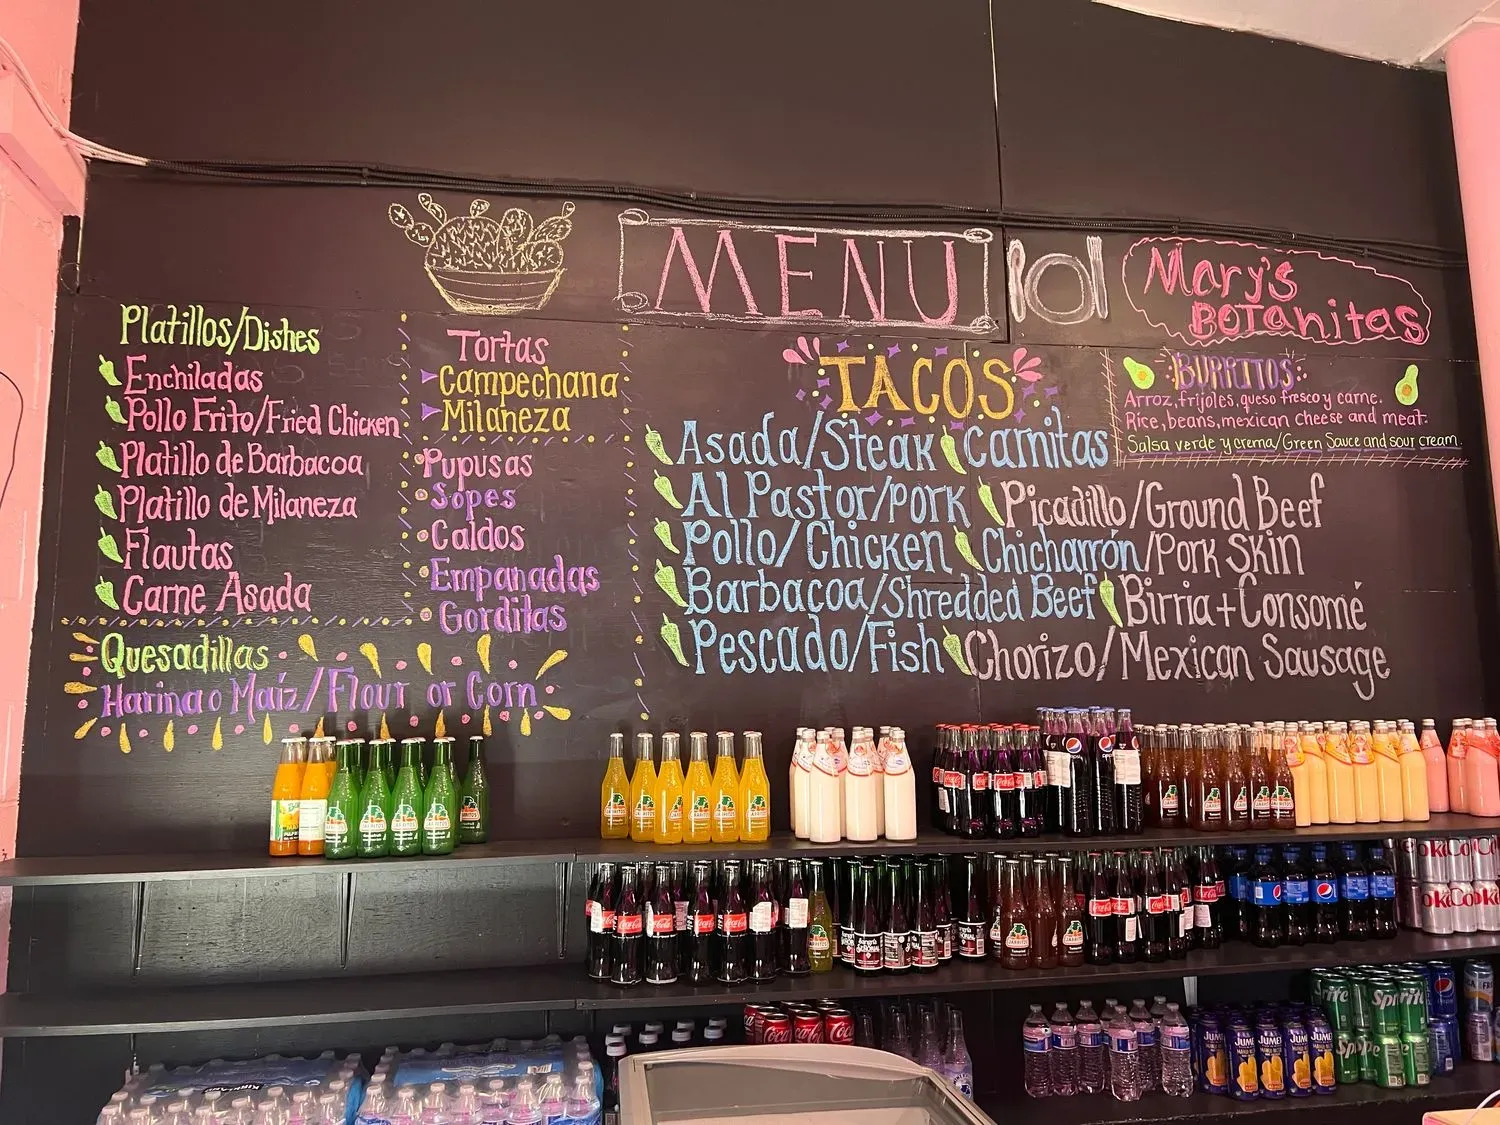 MENU
Mary's
BOTanitas
Platillos/Dishes
Enchiladas
Pollo Frito/Fried Chicken
Platillo de Barbacoa
Platillo de Milaneza
Flautas
Carne Asada
Quesadillas
Harina o Maíz/Flour or Corn
Tortas
Campechana
Milaneza
Pupusas
Sopes
Caldos
Empanadas
Gorditas
TACOS
Asada/Steak
Carnitas
Al Pastor/Pork
Picadillo/Ground Beef
Pollo/Chicken
Chicharrón/Pork Skin
Barbacoa/Shredded Beef
Birria+Consomé
Pescado/Fish
Chorizo/Mexican Sausage
BURRITOS
Arroz, frijoles, queso fresco y carne.
Rice, beans, mexican cheese and meat.
Salsa verde y crema/Green Sauce and sour cream.
JARRITOS
JARRITOS
JARRITOS
JARRITOS
Coca-Cola
Coca-Cola
Coca-Cola
JARRITOS
Coca-Cola
Sprite
KIRKLAND